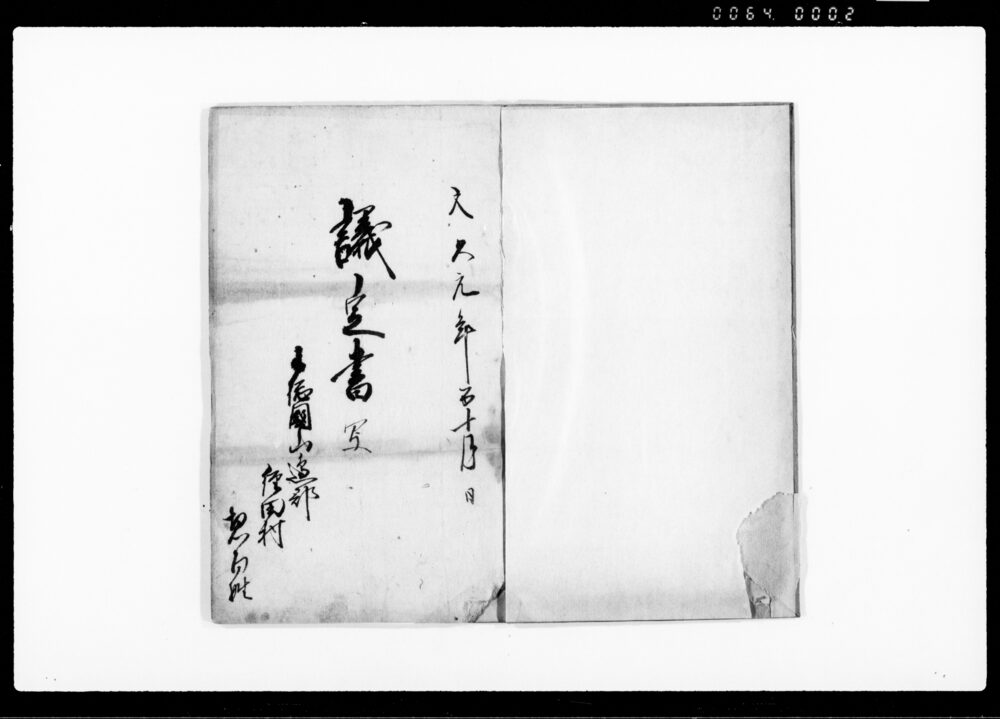 0064 0002
文久元年酉十月 日
議定書 写
上総國山邊郡
経田村
惣百姓